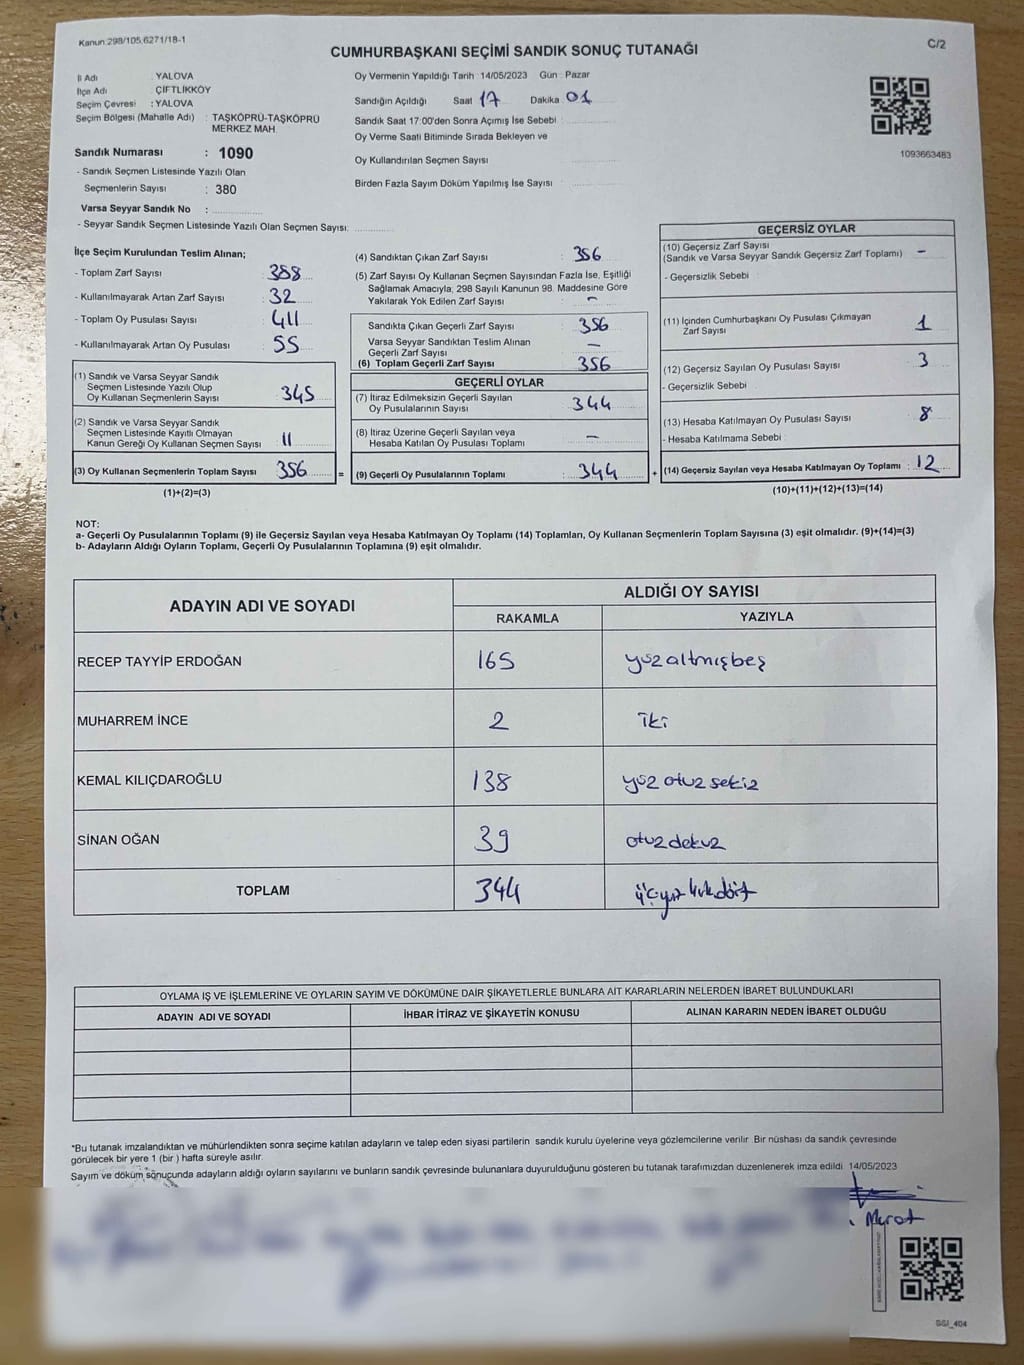 Kanun.298/105,6271/18-1
C/2
CUMHURBAŞKANI SEÇİMİ SANDIK SONUÇ TUTANAĞI
İl Adı : YALOVA
İlçe Adı : ÇİFTLİKKÖY
Seçim Çevresi : YALOVA
Seçim Bölgesi (Mahalle Adı) : TAŞKÖPRÜ-TAŞKÖPRÜ
MERKEZ MAH.
Sandık Numarası : 1090
- Sandık Seçmen Listesinde Yazılı Olan
Seçmenlerin Sayısı : 380
Varsa Seyyar Sandık No :
- Seyyar Sandık Seçmen Listesinde Yazılı Olan Seçmen Sayısı:
Oy Vermenin Yapıldığı Tarih : 14/05/2023 Gün : Pazar
Sandığın Açıldığı Saat 17 Dakika 01
Sandık Saat 17:00'den Sonra Açımış İse Sebebi :
Oy Verme Saati Bitiminde Sırada Bekleyen ve
Oy Kullandırılan Seçmen Sayısı
Birden Fazla Sayım Döküm Yapılmış İse Sayısı :
1093663483
İlçe Seçim Kurulundan Teslim Alınan;
- Toplam Zarf Sayısı : 388
- Kullanılmayarak Artan Zarf Sayısı : 32
- Toplam Oy Pusulası Sayısı : 411
- Kullanılmayarak Artan Oy Pusulası : 55
(1) Sandık ve Varsa Seyyar Sandık
Seçmen Listesinde Yazılı Olup
Oy Kullanan Seçmenlerin Sayısı : 345
(2) Sandık ve Varsa Seyyar Sandık
Seçmen Listesinde Kayıtlı Olmayan
Kanun Gereği Oy Kullanan Seçmen Sayısı : 11
(3) Oy Kullanan Seçmenlerin Toplam Sayısı : 356
(1)+(2)=(3)
(4) Sandıktan Çıkan Zarf Sayısı : 356
(5) Zarf Sayısı Oy Kullanan Seçmen Sayısından Fazla İse, Eşitliği
Sağlamak Amacıyla, 298 Sayılı Kanunun 98. Maddesine Göre
Yakılarak Yok Edilen Zarf Sayısı : -
Sandıkta Çıkan Geçerli Zarf Sayısı : 356
Varsa Seyyar Sandıktan Teslim Alınan
Geçerli Zarf Sayısı : -
(6) Toplam Geçerli Zarf Sayısı : 356
GEÇERLİ OYLAR
(7) İtiraz Edilmeksizin Geçerli Sayılan
Oy Pusulalarının Sayısı : 344
(8) İtiraz Üzerine Geçerli Sayılan veya
Hesaba Katılan Oy Pusulası Toplamı : -
= (9) Geçerli Oy Pusulalarının Toplamı : 344 +
GEÇERSİZ OYLAR
(10) Geçersiz Zarf Sayısı
(Sandık ve Varsa Seyyar Sandık Geçersiz Zarf Toplamı) : -
- Geçersizlik Sebebi :
(11) İçinden Cumhurbaşkanı Oy Pusulası Çıkmayan
Zarf Sayısı : 1
(12) Geçersiz Sayılan Oy Pusulası Sayısı : 3
- Geçersizlik Sebebi
(13) Hesaba Katılmayan Oy Pusulası Sayısı : 8
- Hesaba Katılmama Sebebi :
(14) Geçersiz Sayılan veya Hesaba Katılmayan Oy Toplamı : 12
(10)+(11)+(12)+(13)=(14)
NOT:
a- Geçerli Oy Pusulalarının Toplamı (9) ile Geçersiz Sayılan veya Hesaba Katılmayan Oy Toplamı (14) Toplamları, Oy Kullanan Seçmenlerin Toplam Sayısına (3) eşit olmalıdır. (9)+(14)=(3)
b- Adayların Aldığı Oyların Toplamı, Geçerli Oy Pusulalarının Toplamına (9) eşit olmalıdır.
ADAYIN ADI VE SOYADI ALDIĞI OY SAYISI
RAKAMLA YAZIYLA
RECEP TAYYİP ERDOĞAN 165 yüzaltmışbeş
MUHARREM İNCE 2 iki
KEMAL KILIÇDAROĞLU 138 yüz otuz sekiz
SİNAN OĞAN 39 otuzdokuz
TOPLAM 344 üçyüz kırkdört
OYLAMA İŞ VE İŞLEMLERİNE VE OYLARIN SAYIM VE DÖKÜMÜNE DAİR ŞİKAYETLERLE BUNLARA AİT KARARLARIN NELERDEN İBARET BULUNDUKLARI
ADAYIN ADI VE SOYADI İHBAR İTİRAZ VE ŞİKAYETİN KONUSU ALINAN KARARIN NEDEN İBARET OLDUĞU
*Bu tutanak imzalandıktan ve mühürlendikten sonra seçime katılan adayların ve talep eden siyasi partilerin sandık kurulu üyelerine veya gözlemcilerine verilir. Bir nüshası da sandık çevresinde
görülecek bir yere 1 (bir ) hafta süreyle asılır.
Sayım ve döküm sonucunda adayların aldığı oyların sayılarını ve bunların sandık çevresinde bulunanlara duyurulduğunu gösteren bu tutanak tarafımızdan düzenlenerek imza edildi 14/05/2023
Murat
SGI_404